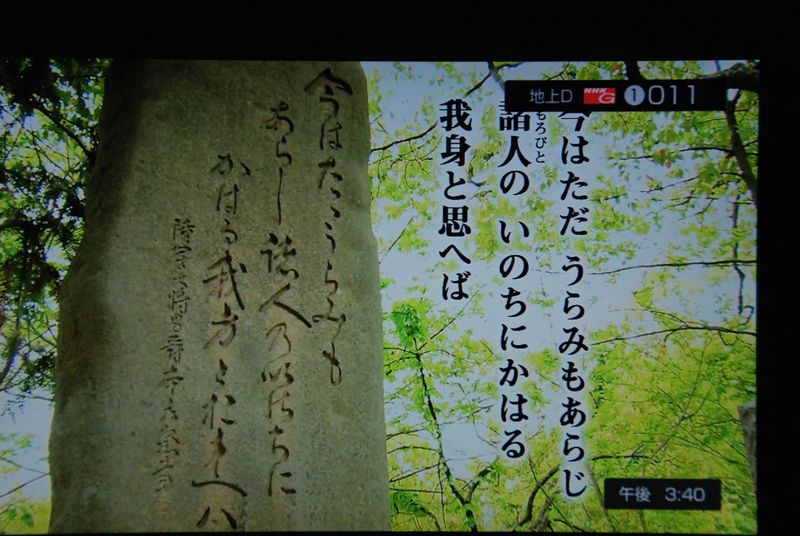 地上D NHK G ① 011
今はただ うらみもあらじ
もろびと
諸人の いのちにかはる
我身と思へば
今はたゝうらみも
あらし諸人乃いのちに
かはる我身とおもへハ
陸軍大将男爵
午後 3:40